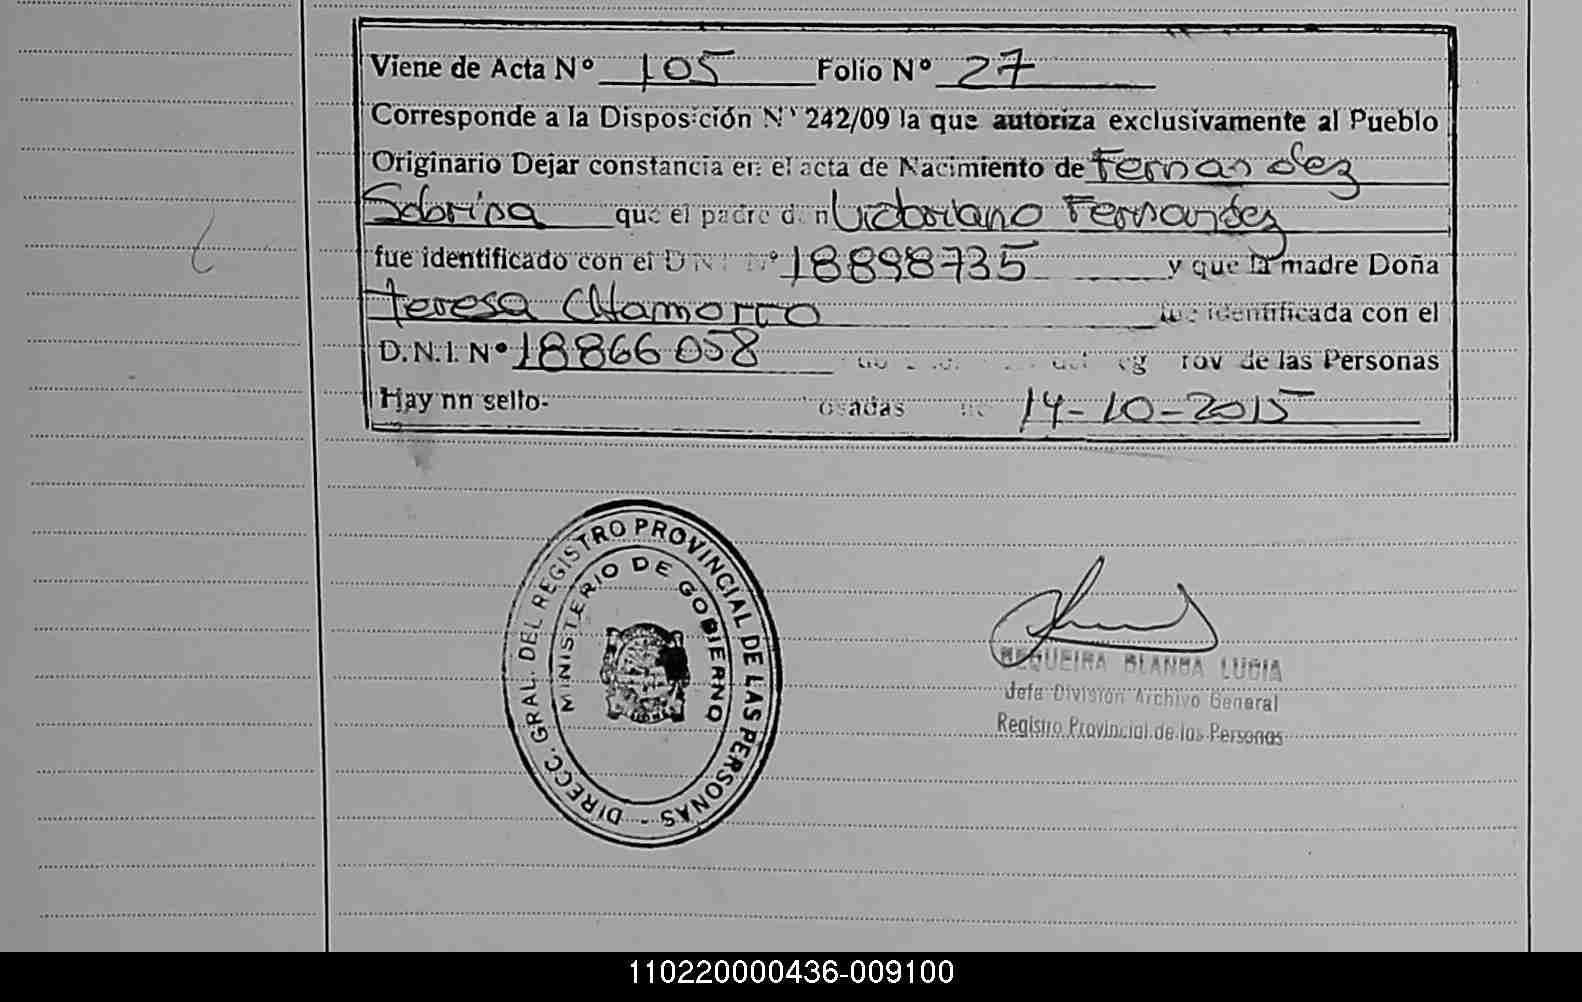 Viene de Acta Nº 105 Folio Nº 27
Corresponde a la Disposición Nº 242/09 la que autoriza exclusivamente al Pueblo
Originario Dejar constancia en el acta de Nacimiento de Fernandez
Sabrina que el padre don Victoriano Fernandez
fue identificado con el D.N.I. Nº 18898735 y que la madre Doña
Teresa Chamorro fue identificada con el
D.N.I. Nº 18866058 del Reg Prov de las Personas
Hay nn sello- Posadas 14-10-2015
DIRECC. GRAL. DEL REGISTRO PROVINCIAL DE LAS PERSONAS -
MINISTERIO DE GOBIERNO
REQUEIRA BLANCA LUCIA
Jefa División Archivo General
Registro Provincial de las Personas
110220000436-009100